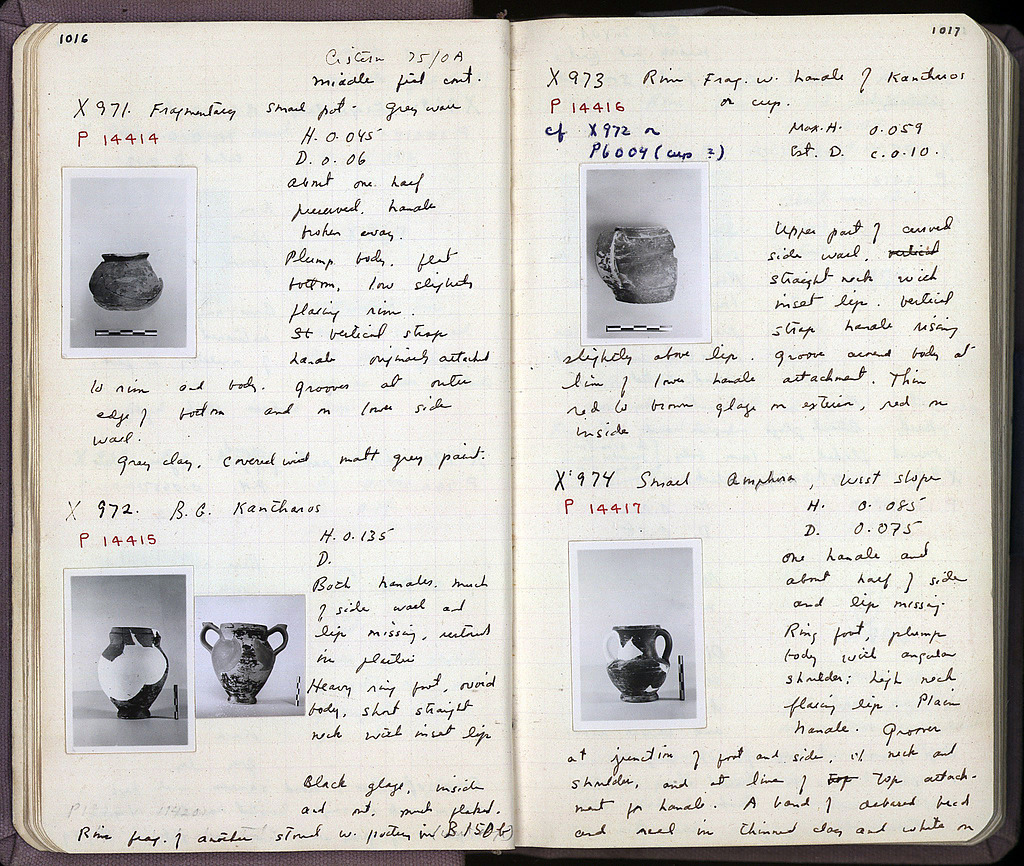 1016
Cistern 75/0A
middle fill cont.
X 971. Fragmentary small pot - grey ware
P 14414
H. 0.045
D. 0.06
About one half
preserved, handle
broken away.
Plump body, flat
bottom, low slightly
flaring rim.
St vertical strap
handle originally attached
to rim and body. Grooves at outer
edge of bottom and on lower side
wall.
Grey clay, covered with matt grey paint.
X 972. B.G. Kantharos
P 14415
H. 0.135
D.
Both handles, much
of side wall and
lip missing, restored
in plaster
Heavy ring foot, ovoid
body, short straight
neck with inset lip
Black glaze, inside
and out, much flaked.
Rim frag. of another stored w. pottery in
1017
X 973 Rim Frag. w. handle of Kantharos
or cup.
P 14416
cf X 972 or
P6004 (cup ?)
Max. H. 0.059
Est. D. c. 0.10.
Upper part of curved
side wall, vertical
straight neck with
inset lip. Vertical
strap handle rising
slightly above lip. Groove around body at
line of lower handle attachment. Thin
red to brown glaze on exterior, red on
inside
X 974 Small Amphora, West Slope
P 14417
H. 0.085
D. 0.075
One handle and
about half of side
and lip missing.
Ring foot, plump
body with angular
shoulder; high neck
flaring lip. Plain
handle. Grooves
at junction of foot and side, of neck and
shoulder, and at line of top top attach-
ment for handle. A band of debased bead
and reel in thinned clay and white on